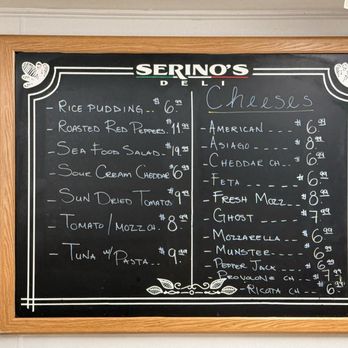 SERINO'S
DELI
- RICE PUDDING.. $6.99
- ROASTED RED PEPPERS. $11.99
- SEA FOOD SALAD- $19.99
- SOUR CREAM CHEDDAR $6.99
- SUN DRIED TOMATO $9.99
- TOMATO/MOZZ CH. $8.99
- TUNA w/ PASTA.. $9.99
Cheeses
- AMERICAN ---- $6.99
- ASIAGO ---- $8.99
- CHEDDAR CH -- $6.99
- FETA ----- $6.99
- FRESH MOZZ.. $8.99
- GHOST ---- $7.99
- MOZZARELLA-- $6.99
- MUNSTER --- $6.99
- PEPPER JACK -- $6.99
- PROVOLONE CH- $7.99
- RICOTA CH -- $6.99